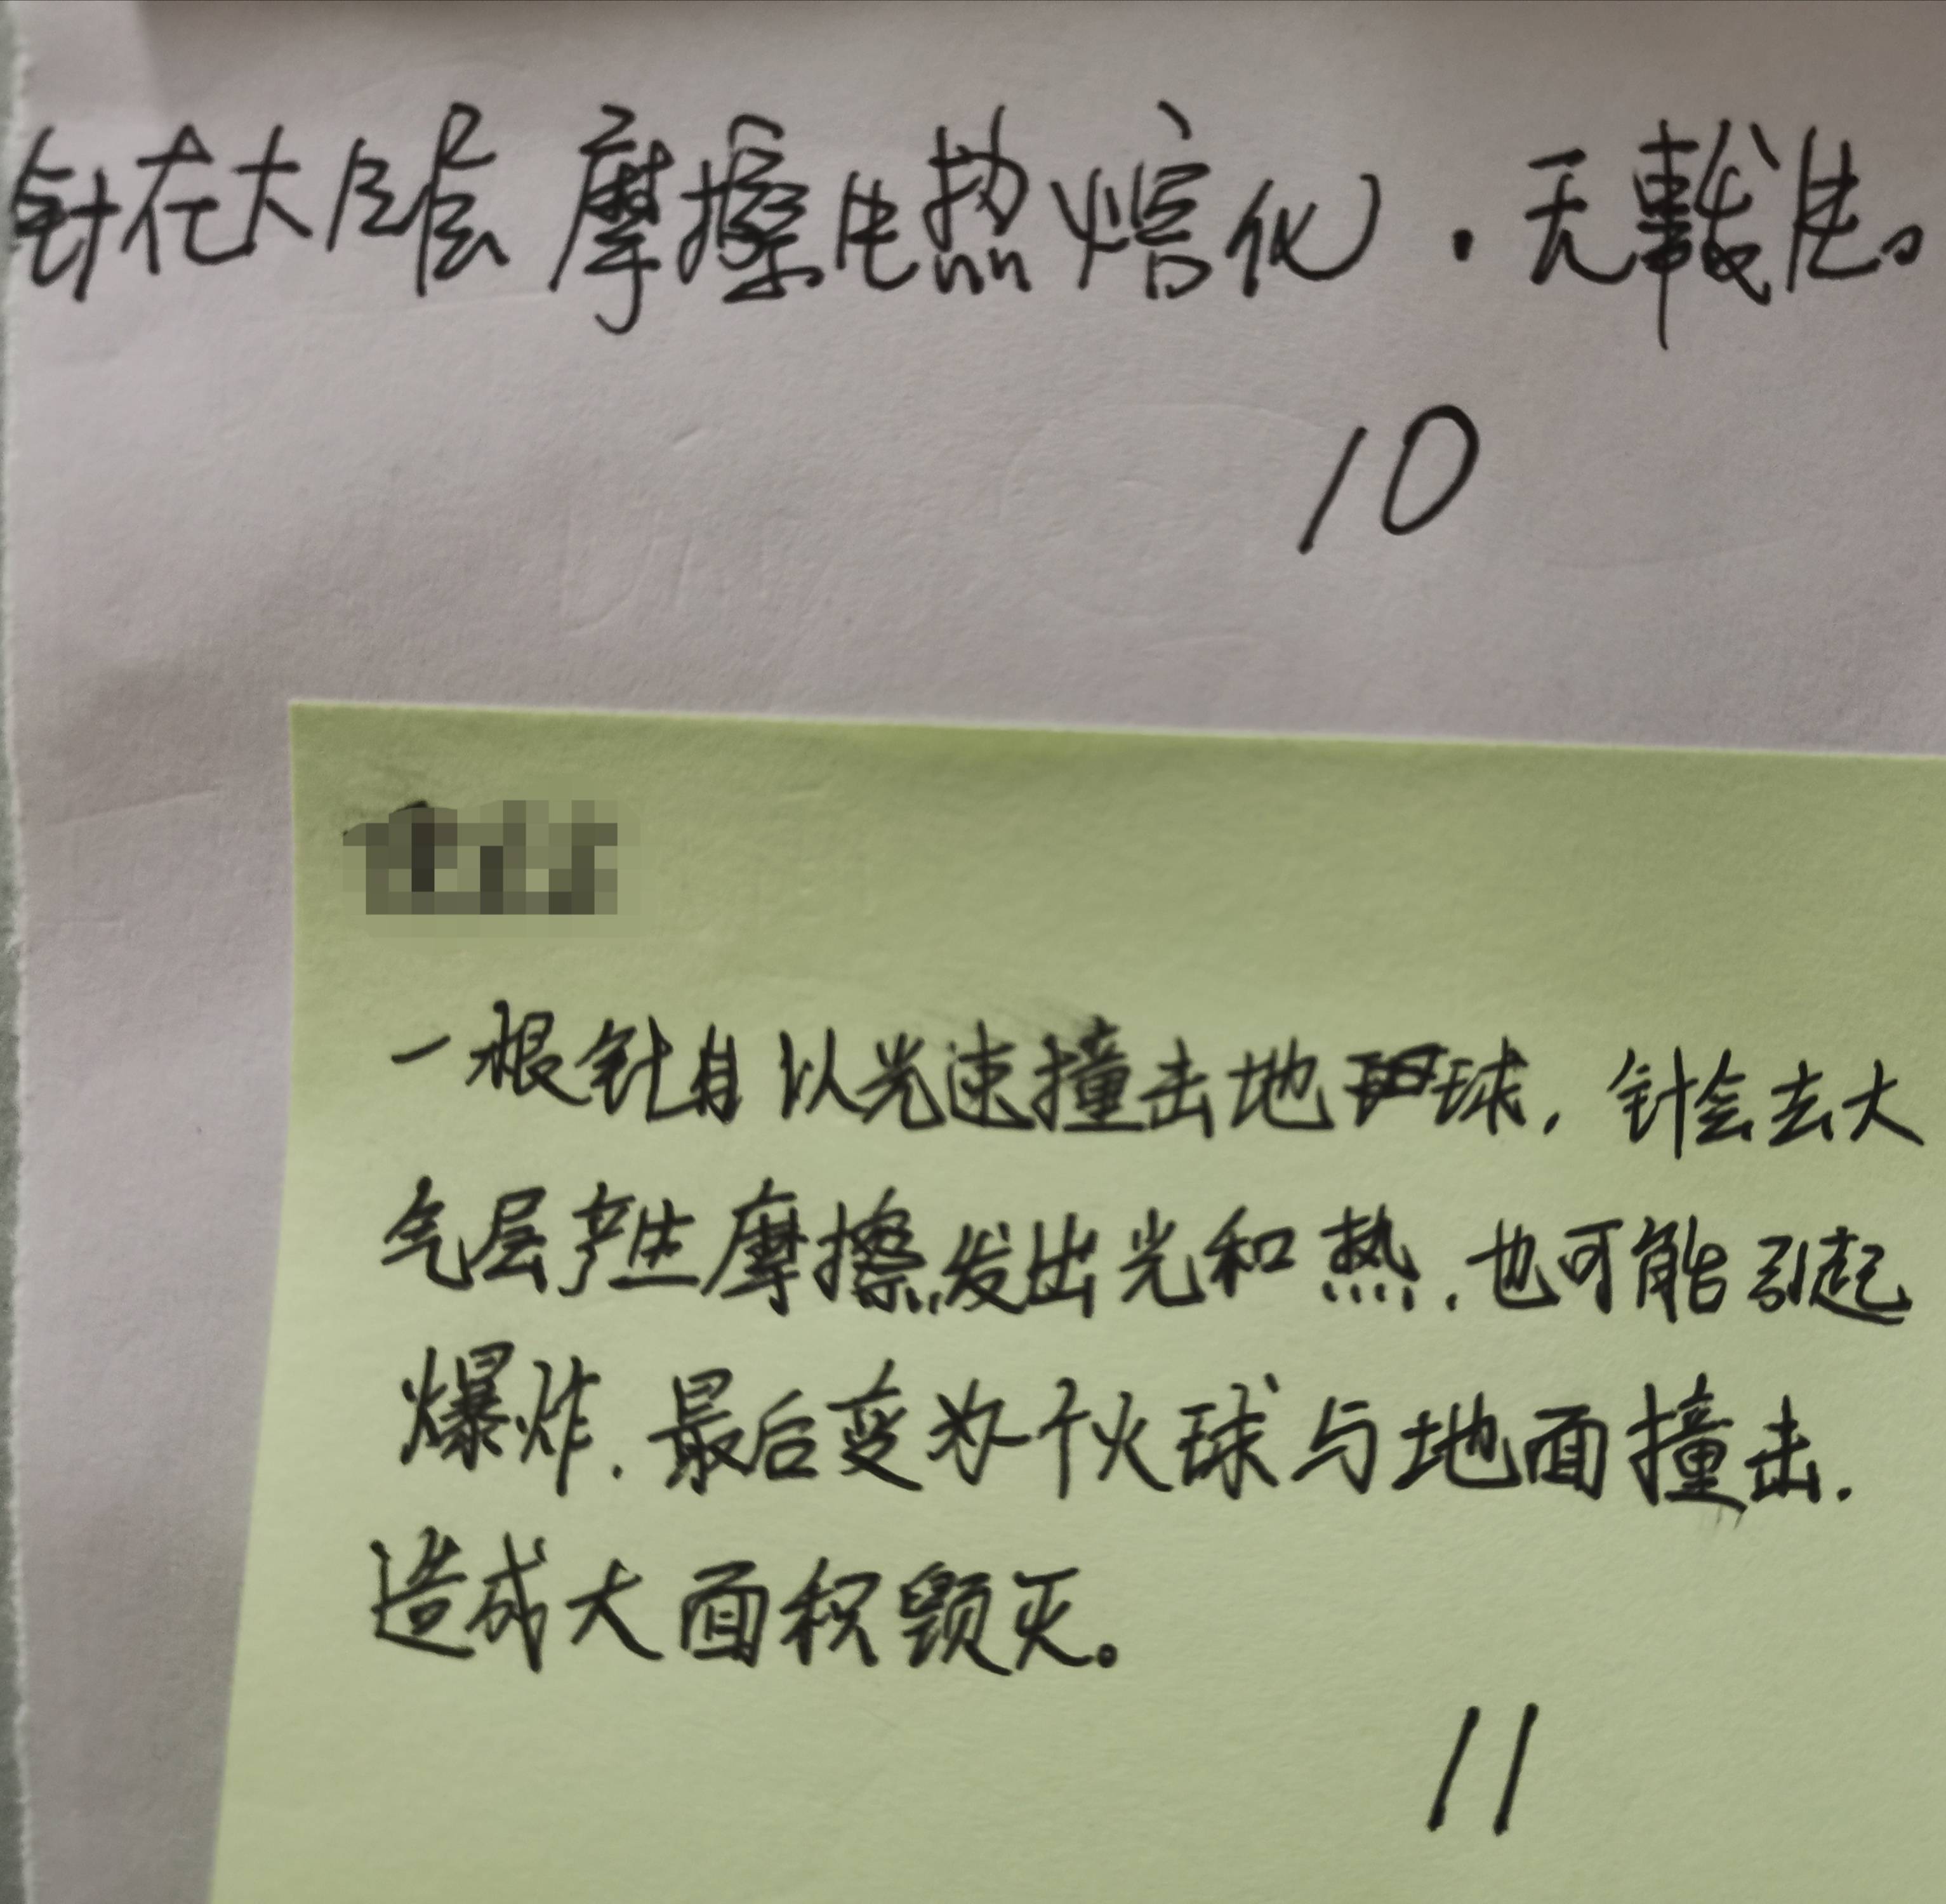 针在大气层摩擦生热熔化.无
10
一根针自以光速撞击地球,针会去大
气层产生摩擦,发出光和热.也可能引起
爆炸.最后变为个火球与地面撞击.
造成大面积毁灭。
11